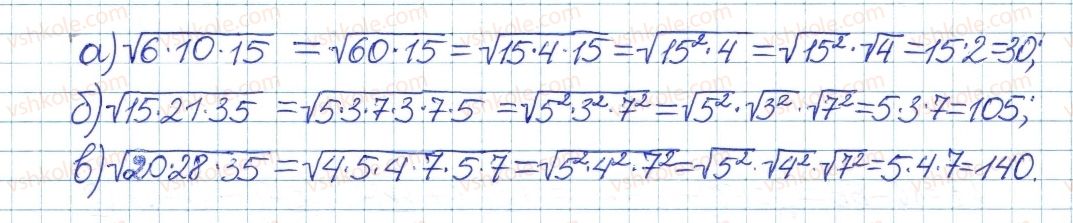 а) √6·10·15 = √60·15 = √15·4·15 = √15²·4 = √15²·√4 = 15·2 = 30;
б) √15·21·35 = √5·3·7·3·7·5 = √5²·3²·7² = √5²·√3²·√7² = 5·3·7 = 105;
в) √20·28·35 = √4·5·4·7·5·7 = √5²·4²·7² = √5²·√4²·√7² = 5·4·7 = 140.